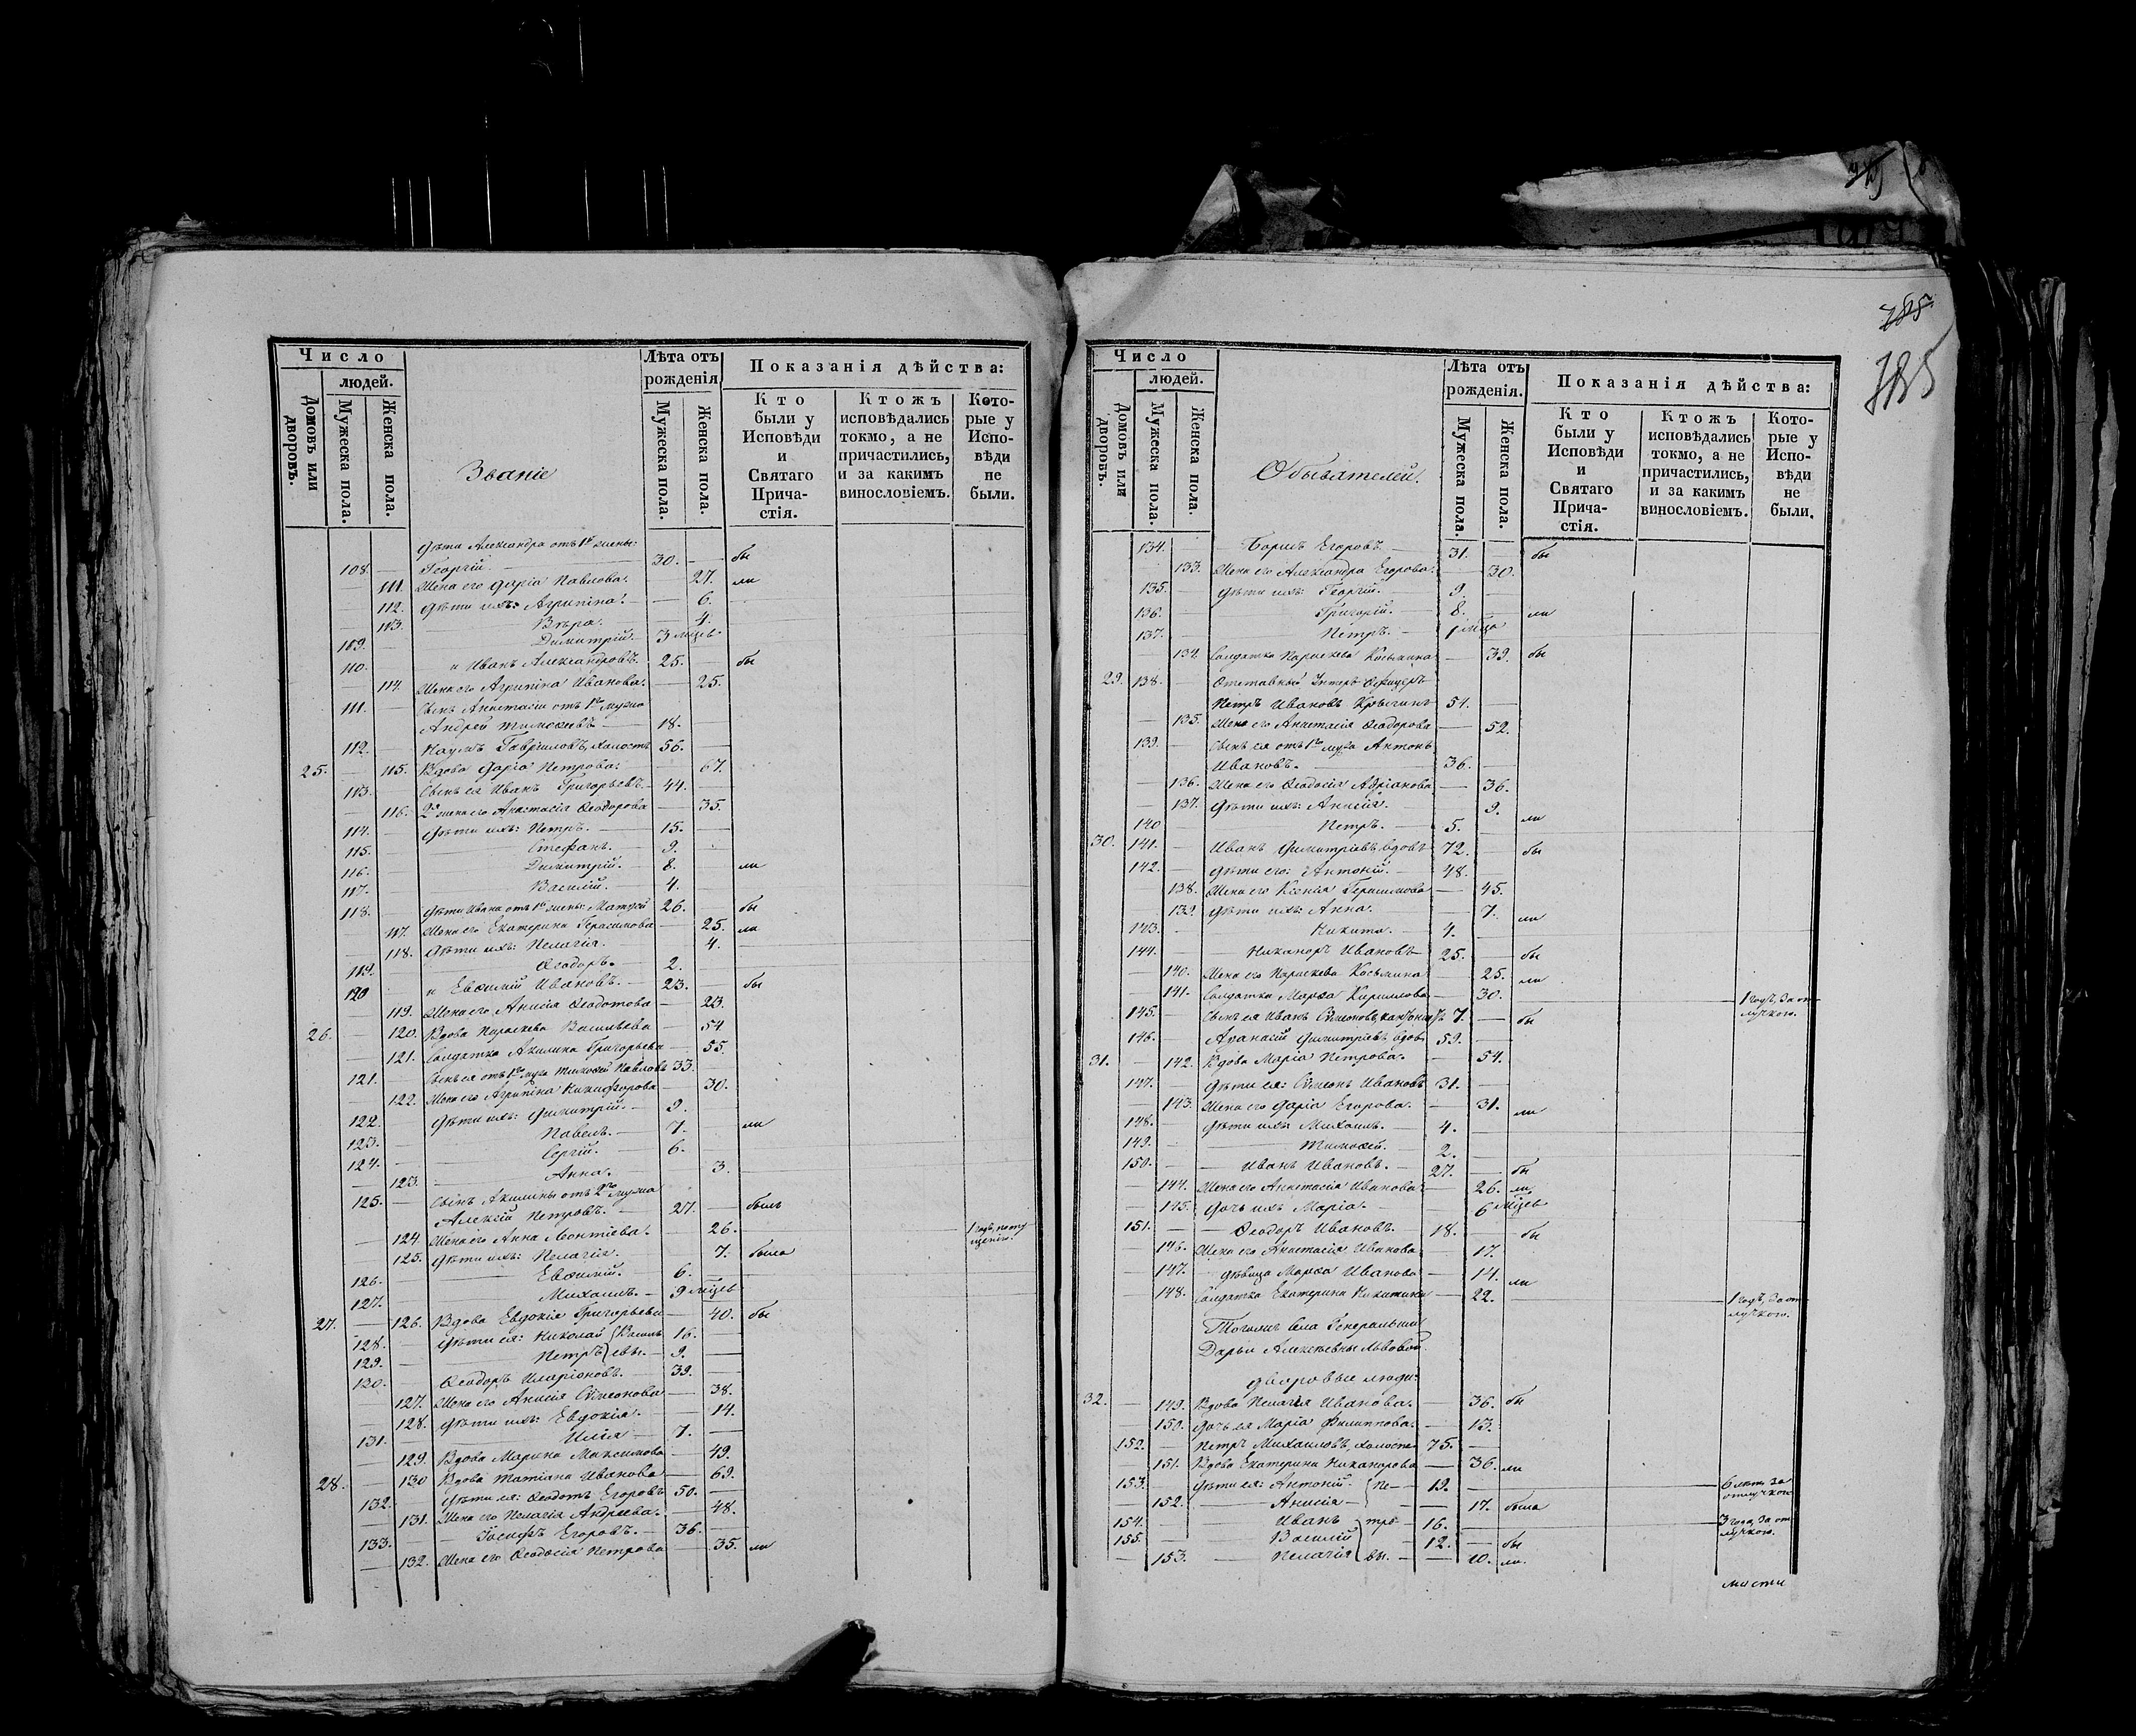 785.
785
Число
людей.
Домовъ или дворовъ.
Мужеска пола.
Женска пола.
Званіе
Лѣта отъ рожденія
Мужеска пола.
Женска пола.
Показанія дѣйства:
Кто были у Исповѣди и Святаго Прича-стія.
Ктожъ исповѣдались токмо, а не причастились, и за какимъ винословіемъ.
Кото-рые у Испо-вѣди не были.
Дѣти Александра отъ 1й жены:
108. — Георгій. — 30. — бы
— 111. Жена его Дарія Павлова. — 27. ли
— 112. Дѣти ихъ: Агрипина. — 6.
— 113. Вѣра. — 4.
109. — Димитрій. 3 мѣцъ
110. — и Иванъ Александровъ. 25. — бы
— 114. Жена его Агрипина Иванова. — 25.
111. — Сынъ Анастасіи отъ 1го мужа
Андрей Тимофеевъ — 18.
112. — Наумъ Гавриловъ, холостъ 56. —
25. — 115. Вдова Дарія Петрова. — 67.
113. — Сынъ ея Иванъ Григорьевъ. 44. —
— 116. 2я жена его Анастасія Ѳеодорова — 35.
114. — Дѣти ихъ: Петръ. — 15. —
115. — Стефанъ. 9.
116. — Димитрій. 8. — ли
117. — Василій. 4.
118. — Дѣти Ивана отъ 1й жены: Матѳей 26. — бы
— 117. Жена его Екатерина Герасимова — 25. ли
— 118. Дѣти ихъ: Пелагія. — 4.
119. — Ѳеодоръ. 2.
120 и Евѳимій Ивановъ. — 23. — бы
— 119. Жена его Анисія Ѳеодотова — 23.
26. — 120. Вдова Параскева Васильева — 54
— 121. Солдатка Акилина Григорьева — 55.
121. — Сынъ ея отъ 1го мужа Тимофей Павловъ 33. —
— 122. Жена его Агрипина Никифорова — 30.
122. — Дѣти ихъ: Димитрій. — 9. —
123. — Павелъ. — 7. — ли
124. — Сергій. — 6. —
— 123. Анна. 3.
125. — Сынъ Акилины отъ 2го мужа
Алексій Петровъ. — 27. — былъ
— 124. Жена его Анна Леонтіева. — 26. —
— 125. Дѣти ихъ: Пелагія. 7. была
126. — Евѳимій. — 6. —
127. Михаилъ. — 9 мѣцъ
27. — 126. Вдова Евдокія Григорьева — 40. бы
128. — Дѣти ея: Николай Василь 16. —
129. — Петръ евы. — 9. —
130. — Ѳеодоръ Иларіоновъ. — 39. —
— 127. Жена его Анисія Сѵмеонова — 38.
— 128. Дѣти ихъ: Евдокія. — 14.
131. Илія — 7. —
— 129. Вдова Марина Максимова — 49.
28. — 130 Вдова Татіана Иванова — 69.
132. Дѣти ея: Ѳеодотъ Егоровъ 50. —
— 131. Жена его Пелагія Андреева. — 48.
133. — Іосифъ Егоровъ. — 36.
— 132. Жена его Ѳеодосія Петрова — 35. ли
Число
людей.
Домовъ или дворовъ.
Мужеска пола.
Женска пола.
Обывателей.
Лѣта отъ рожденія.
Мужеска пола.
Женска пола.
Показанія дѣйства:
Кто были у Исповѣди и Святаго Прича-стія.
Ктожъ исповѣдались токмо, а не причастились, и за какимъ винословіемъ.
Кото-рые у Испо-вѣди не были.
134. Борисъ Егоровъ. — 31. — бы
133. Жена его Александра Егорова. — 30.
135. — Дѣти ихъ: Георгій. 9. —
136. — Григорій. 8. — ли
137. — Петръ. — 1 мѣца
134. Солдатка Параскева Косьмина — 39. бы
29. 138. — Отставный Унтеръ-Офицеръ
Петръ Ивановъ 54. —
— 135. Жена его Анастасія Ѳеодорова — 52.
139. — Сынъ ея отъ 1го мужа Антонъ
Ивановъ. — 36. —
— 136. Жена его Ѳеодосія Адріанова — 36.
— 137. Дѣти ихъ: Анисія. 9.
140 Петръ. — 5. — ли
30. 141. — Иванъ Димитріевъ, вдовъ 72. — бы
142. — Дѣти его: Антоній. — 48.
138. Жена его Ксенія Герасимова — 45.
— 139. Дѣти ихъ: Анна. — 7. ли
143. — Никита. — 4. —
144. — Никаноръ Ивановъ 25. — бы
— 140. Жена его Параскева Косьмина 25. ли
— 141. Солдатка Марѳа Кириллова — 30. — 1 годъ, за отлучкою.
145. — Сынъ ея Иванъ Сѵмеоновъ, кантонистъ 7. — бы
146. — Аѳанасій Димитріевъ, вдовъ 59. —
31. — 142. Вдова Марія Петрова. — 54.
147. — Дѣти ея: Сѵмеонъ Ивановъ 31. —
— 143. Жена его Дарія Егорова. — 31. ли
148. — Дѣти ихъ Михаилъ. — 4. —
149. — Тимофей. — 2. —
150. — Иванъ Ивановъ. — 27. — бы
— 144. Жена его Анастасія Иванова — 26. ли
— 145. Дочь ихъ Марія. — 6 мѣцъ
151. — Ѳеодоръ Ивановъ. 18. — бы
— 146. Жена его Анастасія Иванова — 17.
— 147. Дѣвица Марѳа Иванова — 14. ли
— 148. Солдатка Екатерина Никитина — 22. — 1 годъ, за отлучкою.
Тогожъ села Генеральши
Дарьи Алексѣевны Львовой.
Дворовые люди:
32. — 149. Вдова Пелагія Иванова. — 36. бы
— 150. Дочь ея Марія Филиппова. — 13.
152. — Петръ Михаиловъ, холостъ 75. —
— 151. Вдова Екатерина Никанорова — 36. ли
153. — Дѣти ея: Антоній — Пе — 19. — 6 лѣтъ за отлучкою
— 152. Анисія — 17. была
154. — Иванъ тро — 16. — 3 года, за отлучкою.
155. — Василій — 12. — бы
— 153. — Пелагія вы. — 10. ли.